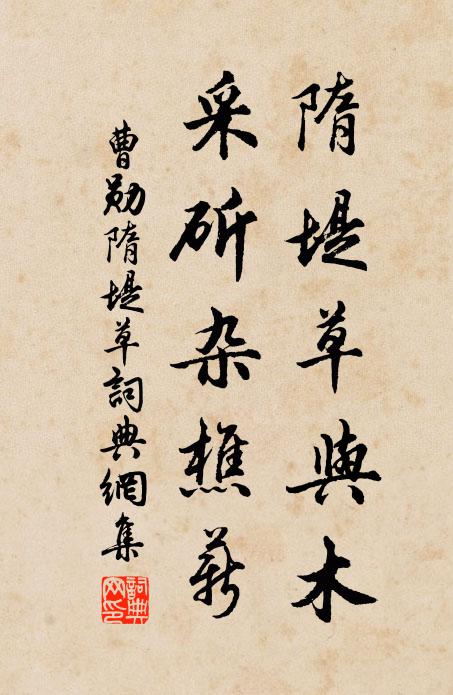 隋堤草與木
采斫杂樵薪
曹勋隋堤草詞典網集
詞典网印